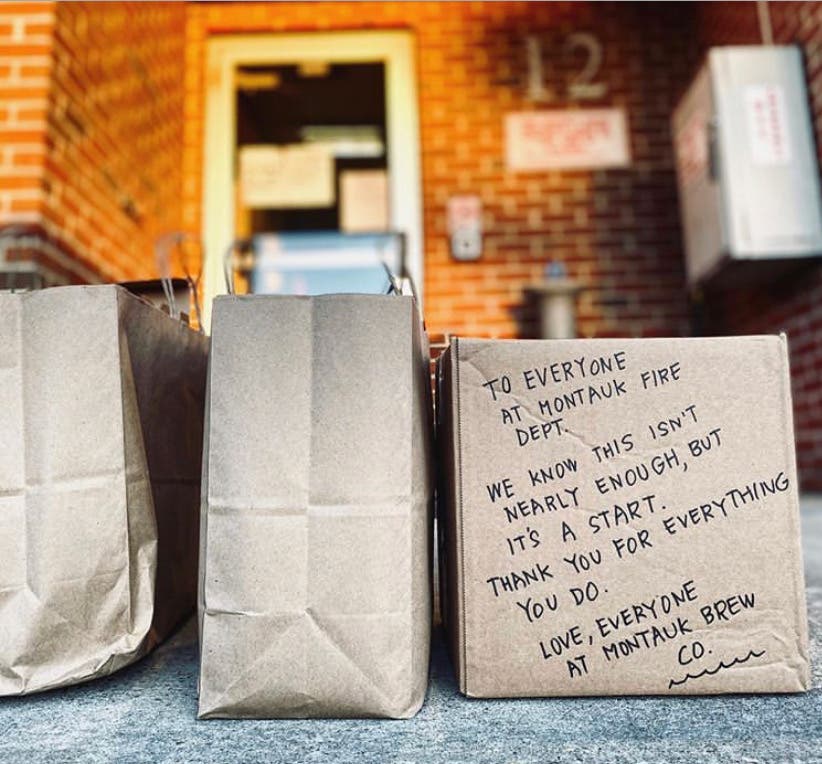 12
TO EVERYONE
AT MONTAUK FIRE
DEPT.
WE KNOW THIS ISN'T
NEARLY ENOUGH, BUT
IT'S A START.
THANK YOU FOR EVERYTHING
YOU DO.
LOVE, EVERYONE
AT MONTAUK BREW
CO.